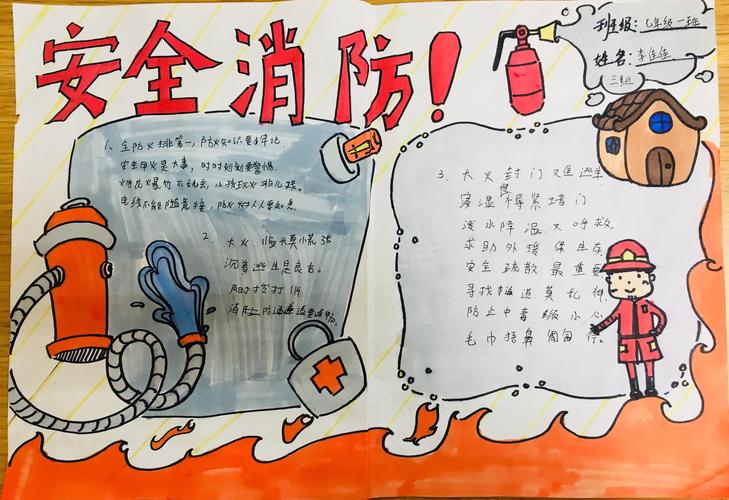 安全消防!
班级:七年级一班
姓名:李佳佳
三班
1、全防火排第一,防火知识要牢记
安全用火是大事,时时刻刻要警惕.
烟花爆竹不乱放,小孩玩火非儿戏.
电线不能随意接,防火对人人要知悉.
2、大火临头莫慌张
沉着逃生是良方.
及时拨打119
消防通道要通畅.
3、大火封门难逃生
浸湿棉褥紧堵门
泼水降温又呼救,
求助外援保生存
安全疏散最重要
寻找通道莫乱神
防止中毒须小心
毛巾捂鼻匍匐行。